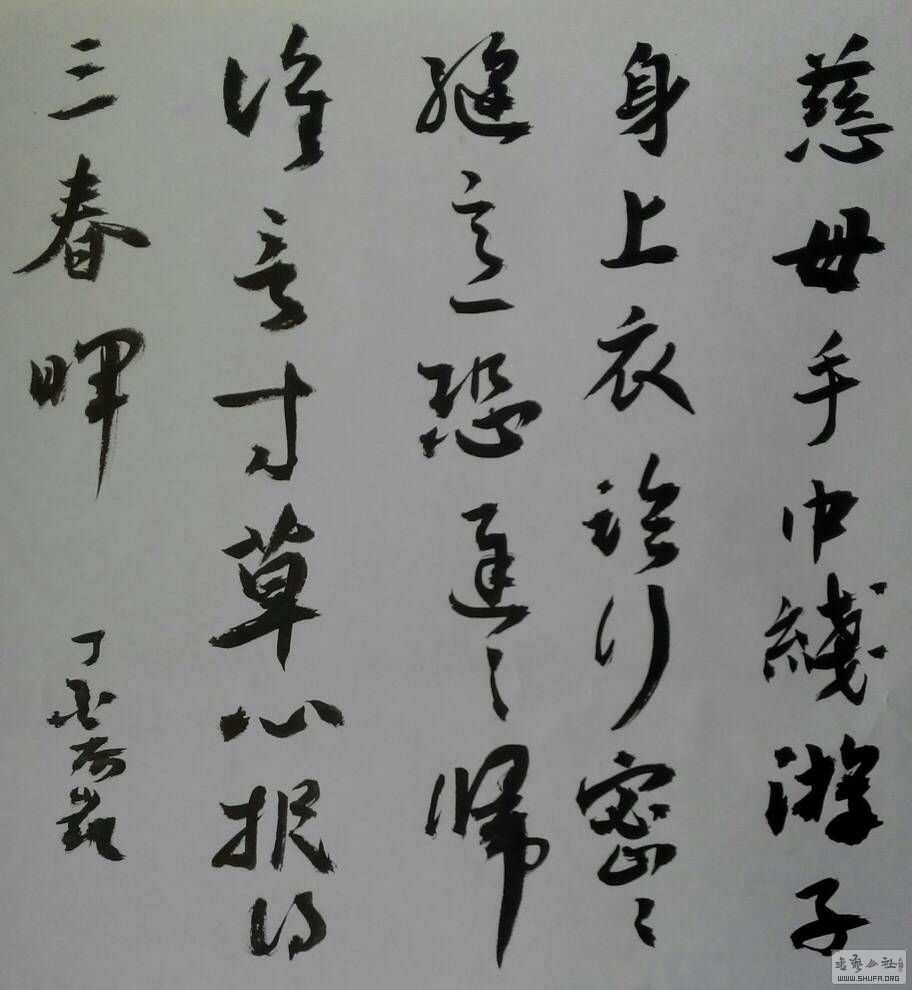 慈母手中綫游子
身上衣臨行密〻
縫意恐遲〻歸
誰言寸草心報得
三春暉
書藝公社
WWW.SHUFA.ORG